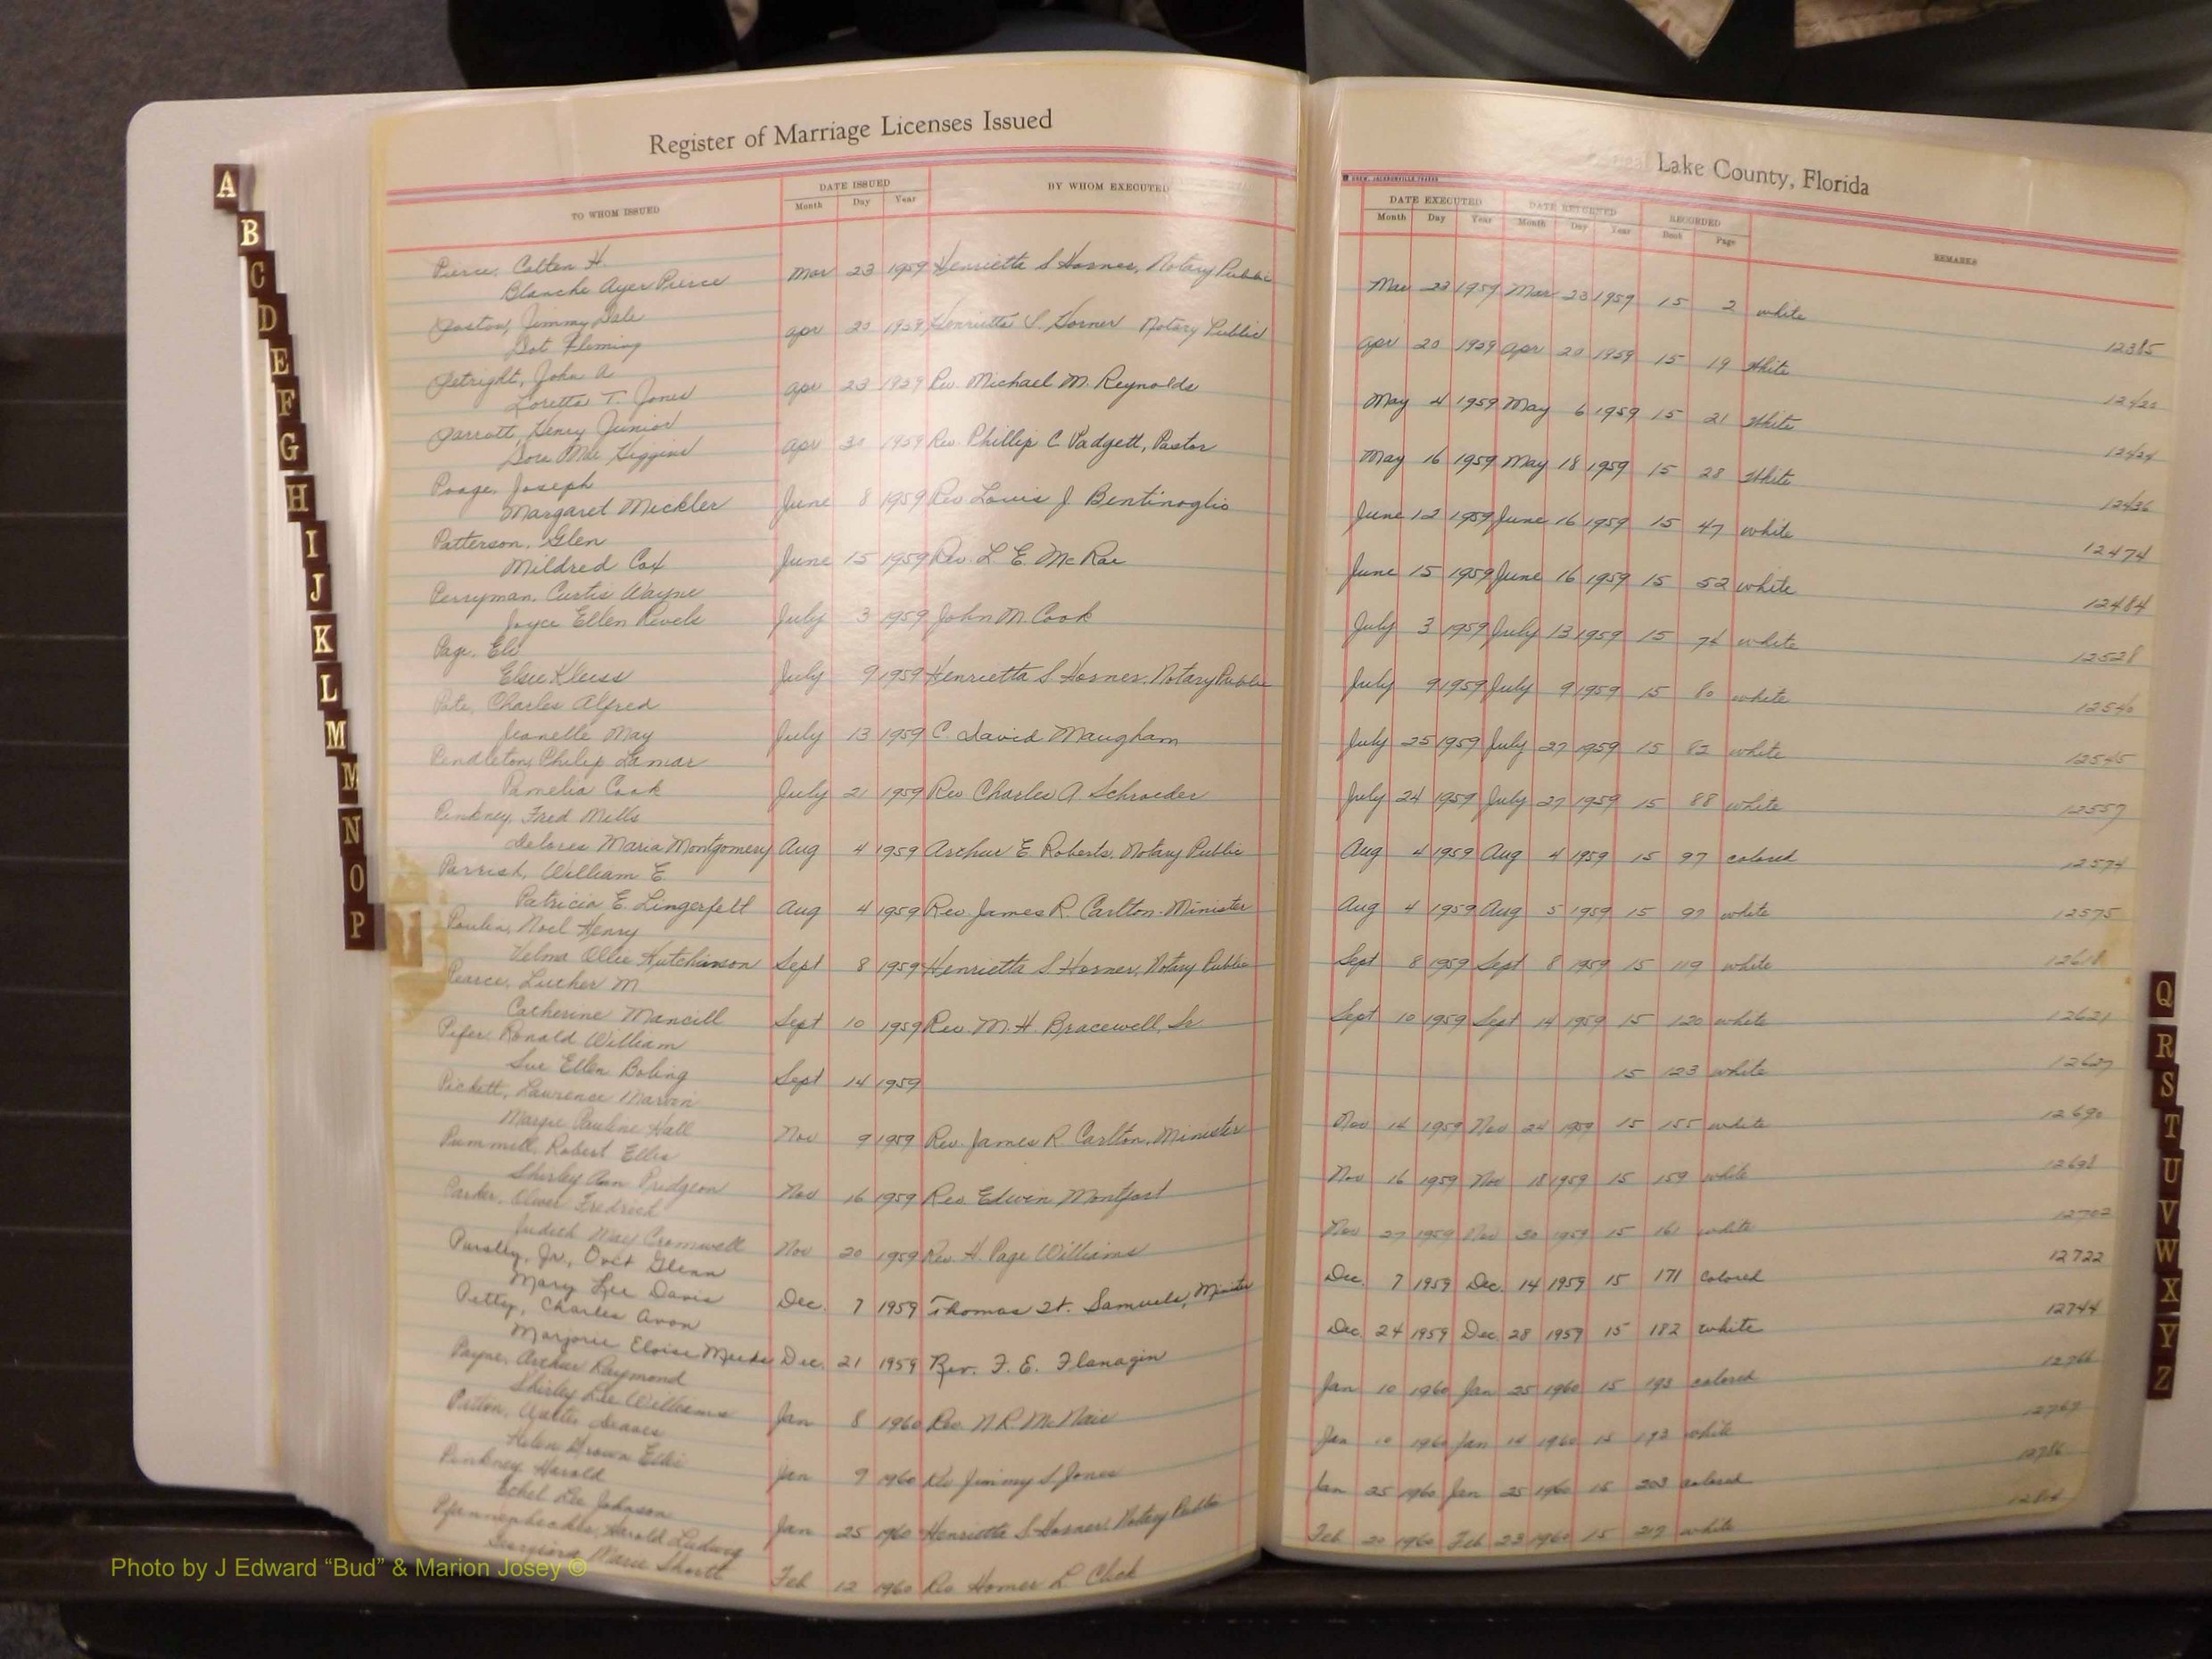 Register of Marriage Licenses Issued
Lake County, Florida
H. & W. B. DREW, JACKSONVILLE
TO WHOM ISSUED
DATE ISSUED
Month Day Year
BY WHOM EXECUTED
DATE EXECUTED
Month Day Year
DATE RETURNED
Month Day Year
RECORDED
Book Page
REMARKS
Pierce, Colten H.
Blanche Ayer Pierce Mar 23 1959 Henrietta S. Horner, Notary Public Mar 23 1959 Mar 23 1959 15 2 white 12385
Poston, Jimmy Dale
Dot Fleming Apr 20 1959 Henrietta S. Horner Notary Public Apr 20 1959 Apr 20 1959 15 19 White
Petright, John A
Loretta T. Jones Apr 23 1959 Rev. Michael M. Reynolds May 4 1959 May 6 1959 15 21 White
Parrott, Henry Junior
Dora Mae Higgins Apr 30 1959 Rev. Phillip C. Padgett, Pastor May 16 1959 May 18 1959 15 28 White 12436
Poage, Joseph
Margaret Meckler June 8 1959 Rev Louis J. Bentinoglio June 12 1959 June 16 1959 15 47 white 12474
Patterson, Glen
Mildred Cox June 15 1959 Rev. L. E. McRae June 15 1959 June 16 1959 15 52 white 12484
Perryman, Curtis Wayne
Joyce Ellen Revels July 3 1959 John M. Cook July 3 1959 July 13 1959 15 74 white 12528
Page, Eli
Elsie Kleiss July 9 1959 Henrietta S. Horner, Notary Public July 9 1959 July 9 1959 15 80 white 12540
Pate, Charles Alfred
Jeanelle May July 13 1959 C. David Maugham July 25 1959 July 27 1959 15 82 white 12545
Pendleton, Philip Lamar
Pamelia Cook July 21 1959 Rev Charles A Schroeder July 24 1959 July 27 1959 15 88 white 12557
Pinkney, Fred Mills
Delores Maria Montgomery Aug 4 1959 Arthur E. Roberts, Notary Public Aug 4 1959 Aug 4 1959 15 97 colored 12574
Parrish, William E.
Patricia E. Lingerfelt Aug 4 1959 Rev. James R. Carlton-Minister Aug 4 1959 Aug 5 1959 15 97 white 12575
Poulin, Noel Henry
Velma Ollie Hutchinson Sept 8 1959 Henrietta S. Horner, Notary Public Sept 8 1959 Sept 8 1959 15 119 white 12618
Pearce, Luther M
Catherine Mancill Sept 10 1959 Rev. M. H. Bracewell, Sr Sept 10 1959 Sept 14 1959 15 120 white 12621
Pifer, Ronald William
Sue Ellen Boling Sept 14 1959 15 123 white 12627
Pickett, Lawrence Marvin
Margie Pauline Hall Nov 9 1959 Rev. James R Carlton, Minister Nov 14 1959 Nov 24 1959 15 155 white 12690
Pummill, Robert Ellis
Shirley Ann Pridgeon Nov 16 1959 Rev Edwin Montfort Nov 16 1959 Nov 18 1959 15 159 white 12698
Parker, Oliver Fredrick
Judith May Cromwell Nov 20 1959 Rev. H. Page Williams Nov 27 1959 Nov 30 1959 15 161 white 12702
Pursley, Jr., Ovct Glenn
Mary Lee Davis Dec. 7 1959 Thomas St. Samuels, Minister Dec. 7 1959 Dec. 14 1959 15 171 colored 12722
Petty, Charles Avon
Marjorie Eloise Meeks Dec. 21 1959 Rev. F. E. Flanagin Dec. 24 1959 Dec. 28 1959 15 182 white 12744
Payne, Arthur Raymond
Shirley Lee Williams Jan 8 1960 Rev. N R. McNair Jan 10 1960 Jan 25 1960 15 193 colored 12766
Patton,
Helen Brown Jan 9 1960 Rev Jimmy S. Jones Jan 10 1960 Jan 14 1960 15 193 white
Pinkney, Harold
Ethel Lee Johnson Jan 25 1960 Henrietta S. Horner, Notary Public Jan 25 1960 Jan 25 1960 15 203 colored 12786
Harold Ludwig
Georgiana Marie Shortt Feb 12 1960 Rev. Homer L. Click Feb 20 1960 Feb 23 1960 15 217 white
A
B
C
D
E
F
G
H
I
J
K
L
M
M
N
O
P
Q
R
S
T
U
V
W
X
Y
Z
Photo by J Edward “Bud” & Marion Josey ©